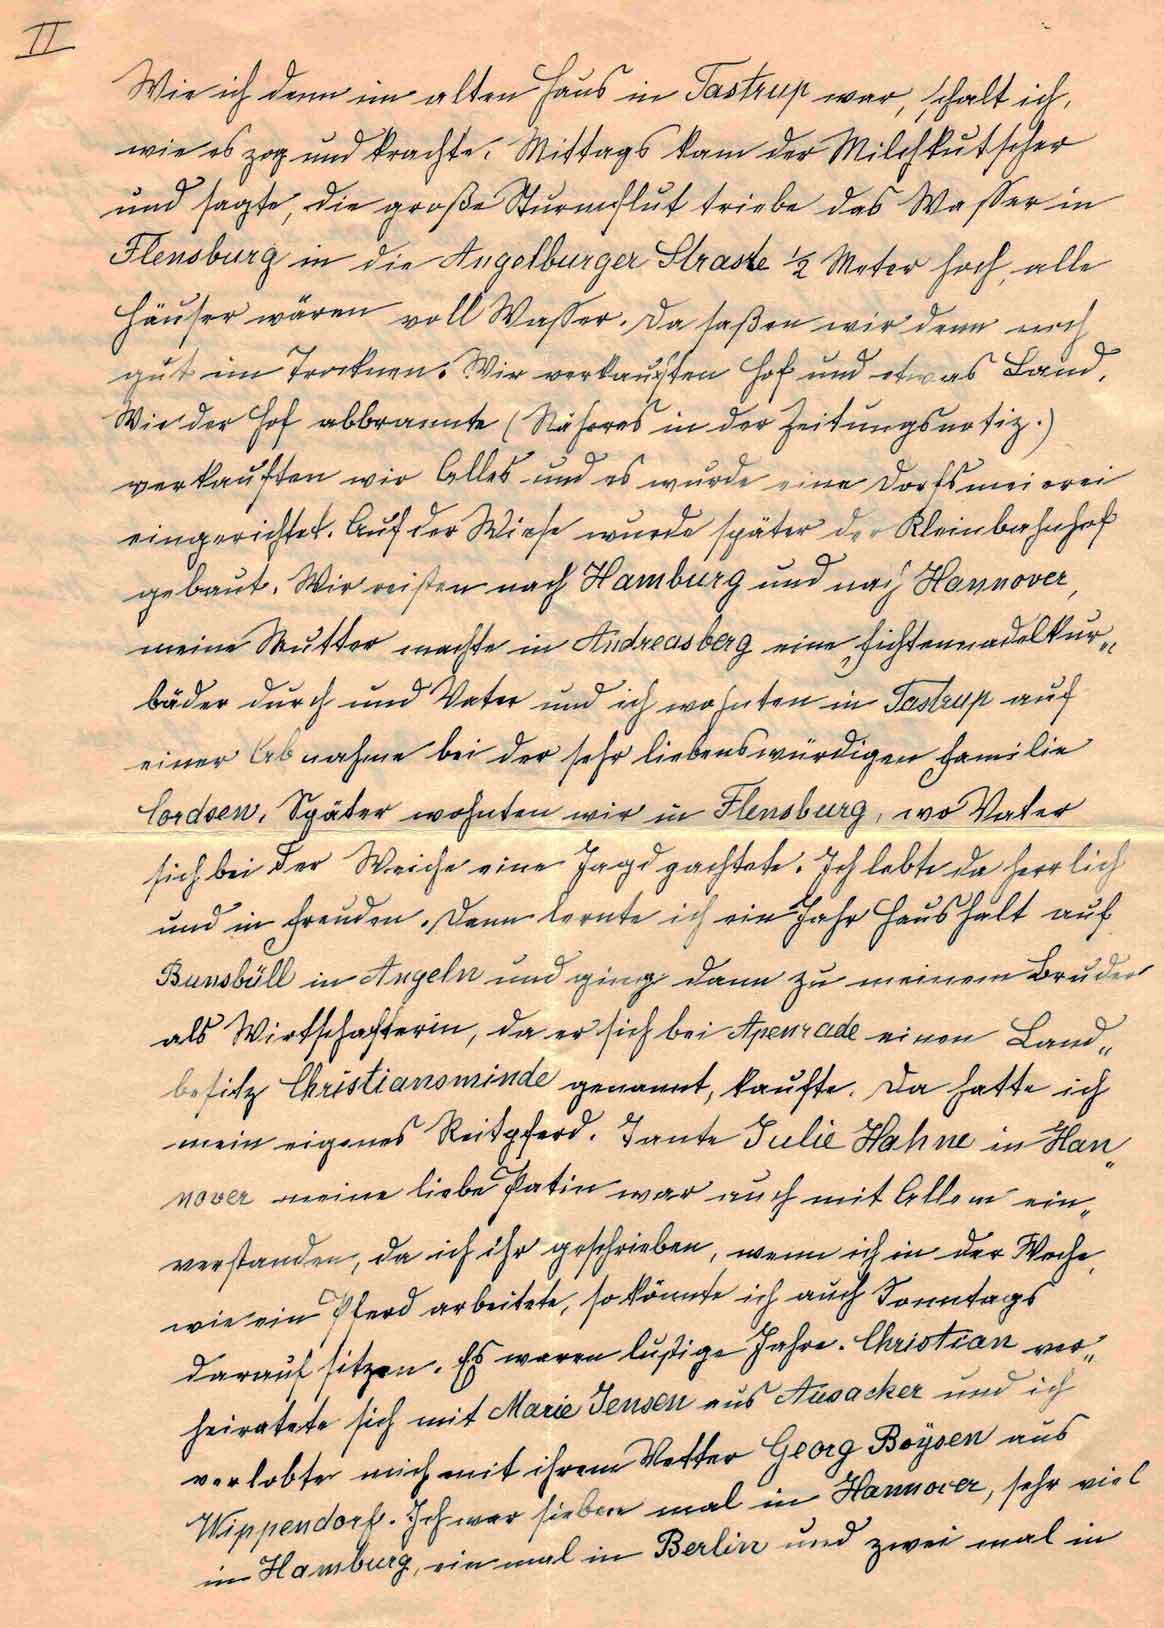 II
Wie ich denn im alten Haus in Tastrup war, schalt ich,
wie es zog und krachte. Mittags kam der Milchkutscher
und sagte, die große Sturmflut triebe das Wasser in
Flensburg in die Angelburger Straße ½ Meter hoch, alle
Häuser wären voll Wasser. Da saßen wir denn noch
gut im Trocknen. Wir verkauften Hof und etwas Land.
Wie der Hof abbrannte (Näheres in der Zeitungsnotiz.)
verkauften wir Alles und es wurde eine Dorfsmeierei
eingerichtet. Auf der Wiese wurde später der Kleinbahnhof
gebaut. Wir reisten nach Hamburg und nach Hannover,
meine Mutter machte in Andreasberg eine „Fichtennadelkur„
bäder durch und Vater und ich wohnten in Tastrup auf
einer Abnahme bei der sehr liebenswürdigen Familie
Cordsen. Später wohnten wir in Flensburg, wo Vater
sich bei der Weiche eine Jagd pachtete. Ich lebte da herrlich
und in Freuden. Dann lernte ich ein Jahr Haushalt auf
Bunsbüll in Angeln und ging dann zu meinem Bruder
als Wirtschafterin, da er sich bei Apenrade einen Land„
besitz Christiansminde genannt, kaufte. Da hatte ich
mein eigenes Reitpferd. Tante Julie Hahne in Han„
nover meine liebe Patin war auch mit Allem ein„
verstanden, da ich ihr geschrieben, wenn ich in der Woche,
wie ein Pferd arbeitete, so könnte ich auch Sonntags
darauf sitzen. Es waren lustige Jahre. Christian ver„
heiratete sich mit Marie Jensen aus Ausacker und ich
verlobte mich mit ihrem Vetter Georg Boÿsen aus
Wippendorf. Ich war sieben mal in Hannover, sehr viel
in Hamburg, ein mal in Berlin und zwei mal in